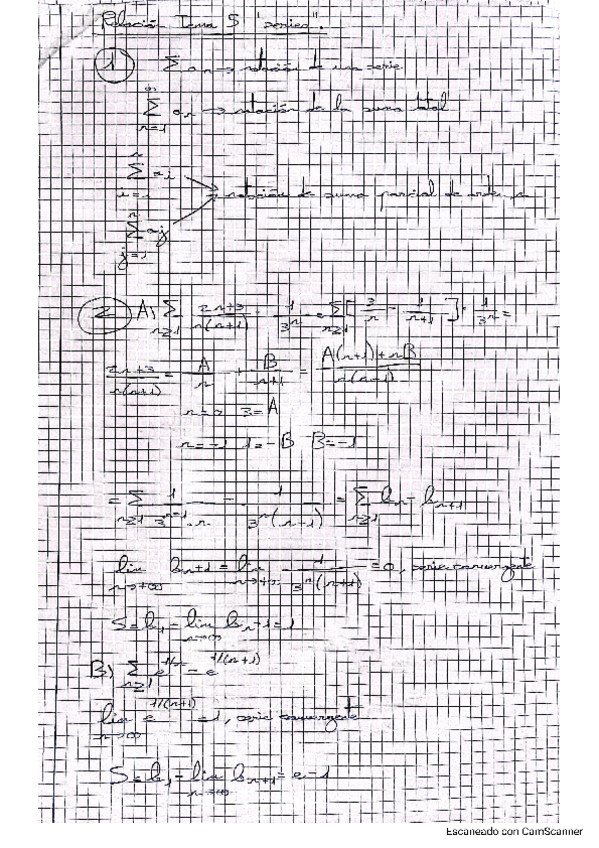 Relación Tema 5 "series".
1 Σ an → notación de una serie
∞ Σ n=1 an → notación de la suma total
n Σ i=1 ai
→ notación de suma parcial de orden n
n Σ j=1 aj
2 A) Σ n≥1 2n+3/n(n+1) · 1/3^n = Σ n≥1 [3/n - 1/n+1] · 1/3^n =
2n+3/n(n+1) = A/n + B/n+1 = A(n+1)+nB/n(n+1)
n=0 3=A
n=-1 1=-B B=-1
= Σ n≥1 1/3^n-1·n - 1/3^n(n+1) = Σ n≥1 bn - bn+1
lim n→+∞ bn+1 = lim n→+∞ 1/3^n(n+1) = 0, serie convergente
S = b1 - lim n→∞ bn+1 = 1
B) Σ n≥1 e^1/n - e^1/(n+1)
lim n→∞ e^1/(n+1) = 1, serie convergente
S = b1 - lim n→∞ bn+1 = e-1
Escaneado con CamScanner